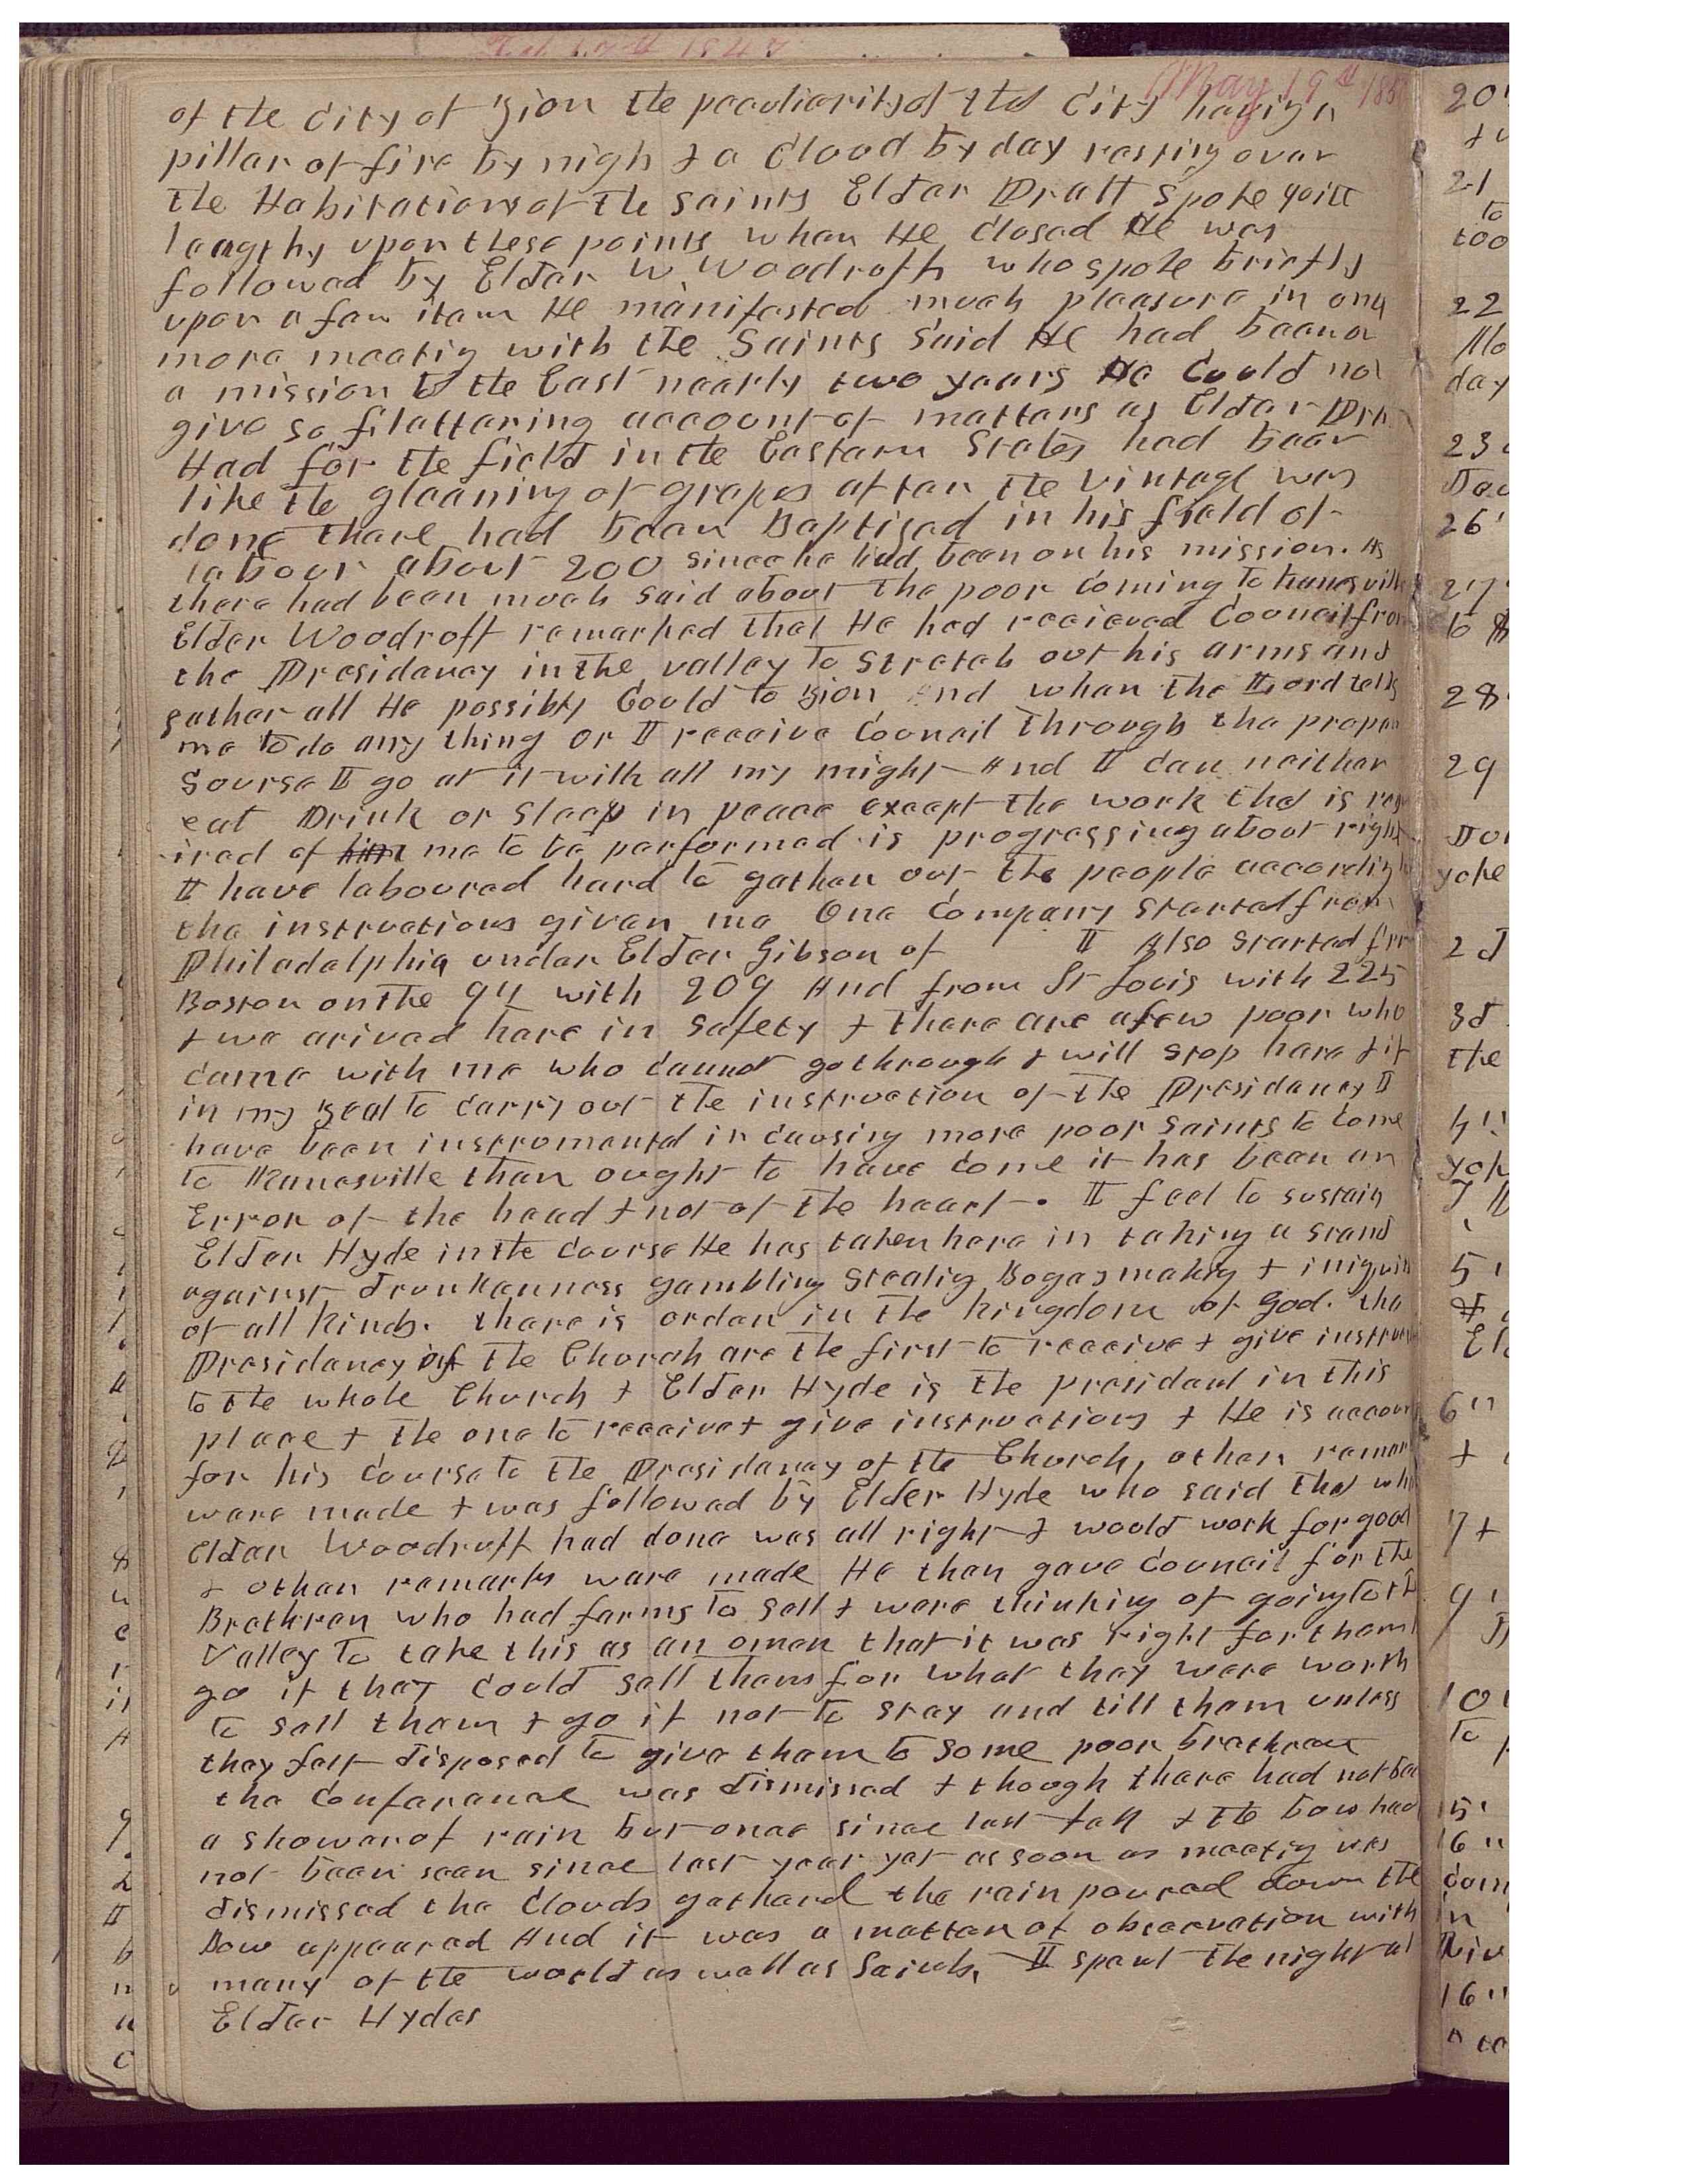 May 19th 185
of the City of Zion the peculiarity of that City having a
pillar of fire by nigh & a Cloud by day resting over
the Habitations of the Saints Elder Pratt Spoke quite
lengthy upon these points when He closed He was
followed by Elder W Woodruff who spoke briefly
upon a few item He manifested much pleasure in once
more meeting with the Saints Said He had been on
a mission to the East nearly two years He Could not
give so flattering account of matters as Elder Pra
Had for the field in the Eastern States had been
like the gleaning of grapes after the vintage was
done there had been Baptised in his field of
labour about 200 since he had been on his mission. As
there had been much said about the poor coming to Kanesville
Elder Woodruff remarked that He had recieved Council from
the Presidency in the valley to Stretch out his arms and
gather all He possibly Could to Zion And when the Lord tells
me to do any thing or I receive Council through the proper
Sourse I go at it with all my might And I can neither
eat Drink or Sleep in peace except the work that is requ
ired of him me to be performed is progressing about right
I have laboured hard to gather out the people according to
the instructions given me One Company Started from
Philadelphia under Elder Gibson of I Also Started fr
Boston on the 9th with 209 And from St Louis with 225
& we arived here in Safety & there are a few poor who
came with me who cannot go through & will stop here & if
in my zeal to carry out the instruction of the Presidency I
have been instrumental in causing more poor Saints to come
to Kanesville than ought to have come it has been an
Error of the head & not of the heart. I feel to sustain
Elder Hyde in the course He has taken here in taking a stand
against drunkenness gambling Stealing Bogas making & iniquity
of all kinds. there is order in the kingdom of God. the
Presidency of the Church are the first to receive & give instruct
to the whole Church & Elder Hyde is the president in this
place & the one to receive & give instructions & He is accoun
for his course to the Presidency of the Church, other remar
were made & was followed by Elder Hyde who said that wh
Elder Woodruff had done was all right & would work for good
& other remarks were made He then gave Council for the
Brethren who had farms to sell & were thinking of going to the
Valley to take this as an omen that it was right for them
go if they could sell them for what they were worth
to sell them & go if not to stay and till them unless
they felt disposed to give them to some poor brethren
the Conferance was dismissed & though there had not bee
a shower of rain but once since last fall & the bow had
not been seen since last year yet as soon as meeting was
dismissed the clouds gatherd the rain poured down the
Bow appeared And it was a matter of observation with
many of the world as well as Saints, I spent the night at
Elder Hydes